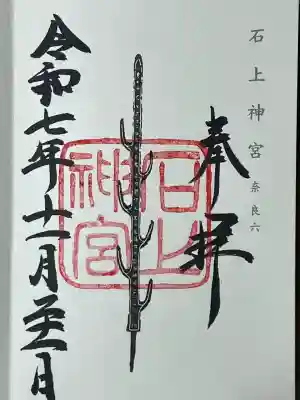 石上神宮 奈良六
奉拝
石上神宮
令和七年十一月 日